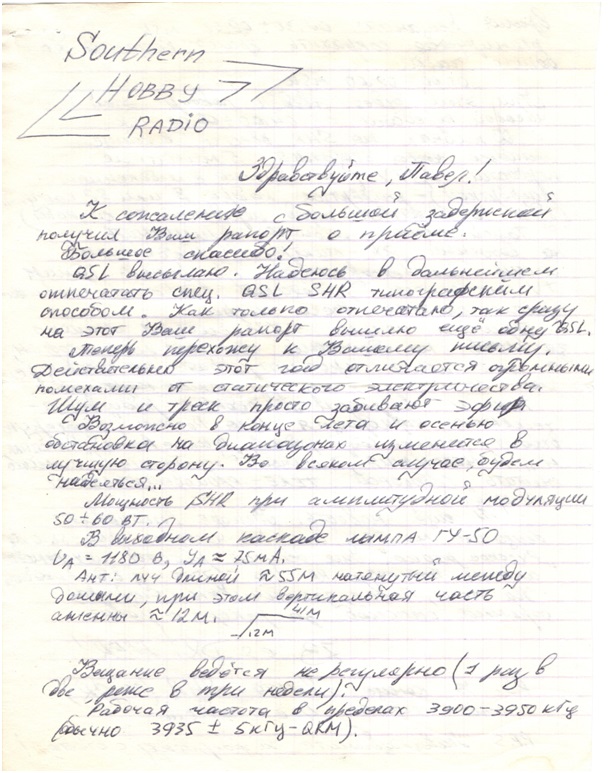 Southern
HOBBY
RADIO
Здравствуйте, Павел!
К сожалению с большой задержкой
получил Ваш рапорт о приёме.
Большое спасибо!
QSL высылаю. Надеюсь в дальнейшем
отпечатать спец. QSL SHR типографским
способом. Как только отпечатаю, так сразу
на этот Ваш рапорт вышлю ещё одну QSL.
Теперь перехожу к Вашему письму.
Действительно этот год отличается огромными
помехами от статического электричества.
Шум и треск просто забивают эфир
Возможно в конце лета и осенью
обстановка на диапазонах изменется в
лучшую сторону. Во всяком случае, будем
надеяться...
Мощность SHR при амплитудной модуляции
50÷60 Вт.
В выходном каскаде лампа ГУ-50
UA = 1180 В, YA ≈ 75мА.
Ант: луч длиной ≈ 55м натянутый между
домами, при этом вертикальная часть
антенны ≈ 12м.
41м
12м
Вещание ведётся не регулярно (1 раз в
две, реже в три недели).
Рабочая частота в пределах 3900-3950 кГц
(обычно 3935 ± 5кГц-QRM).